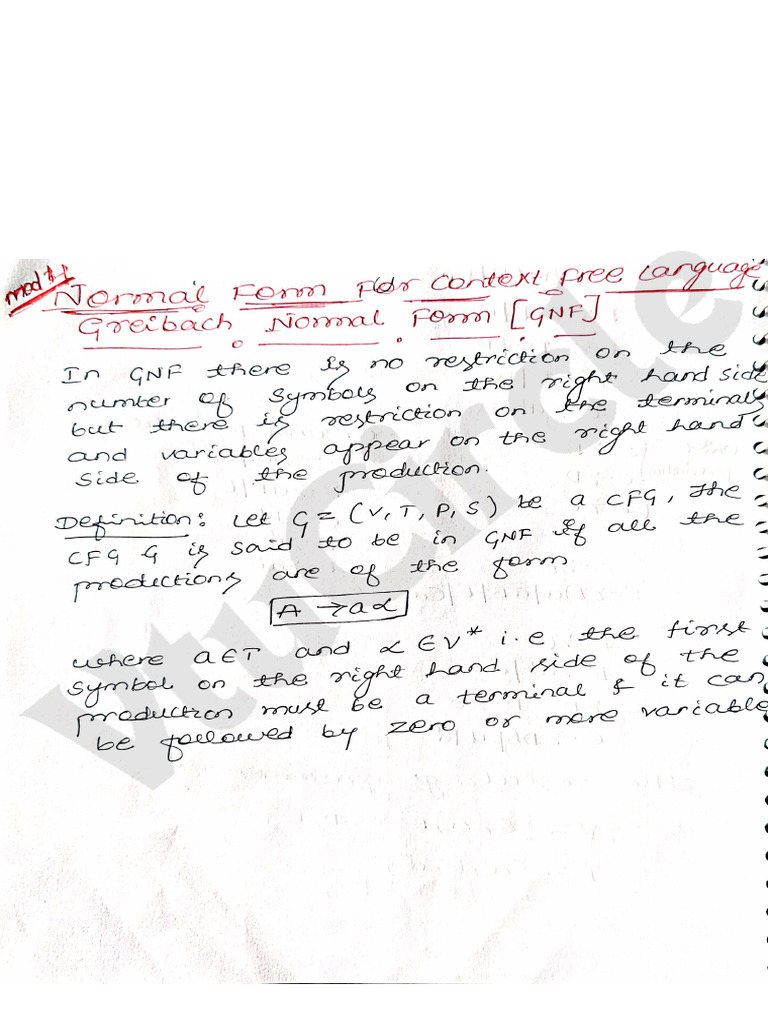 mod 4
Normal Form For Context Free Language
Greibach Normal Form [GNF]
In GNF there is no restriction on the
number of symbols on the right hand side
but there is restriction on the terminals
and variables appear on the right hand
side of the production.
Definition: Let G = (V, T, P, S) be a CFG, The
CFG G is said to be in GNF if all the
productions are of the form
A → aα
where a ∈ T and α ∈ V* i.e the first
symbol on the right hand side of the
production must be a terminal & it can
be followed by zero or more variable
VtuCircle